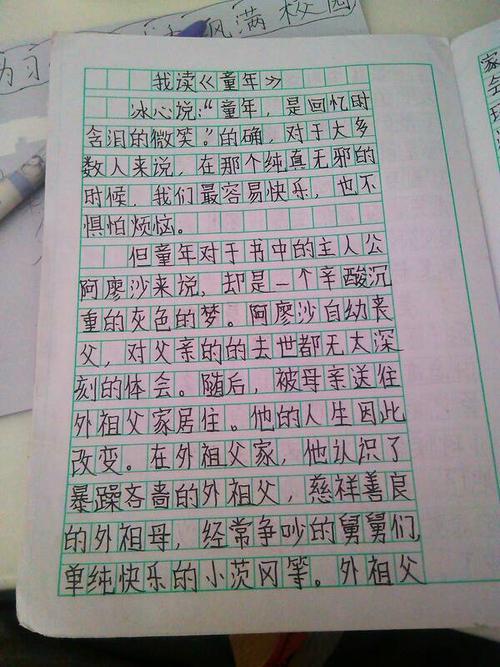 风满校园
为习
我读《童年》
冰心说:“童年，是回忆时
含泪的微笑。”的确，对于大多
数人来说，在那个纯真无邪的
时候，我们最容易快乐，也不
惧怕烦恼。
但童年对于书中的主人公
阿廖沙来说，却是一个辛酸沉
重的灰色的梦。阿廖沙自幼丧
父，对父亲的的去世都无太深
刻的体会。随后，被母亲送往
外祖父家居住。他的人生因此
改变。在外祖父家，他认识了
暴躁吝啬的外祖父，慈祥善良
的外祖母，经常争吵的舅舅们，
单纯快乐的小茨冈等。外祖父
家